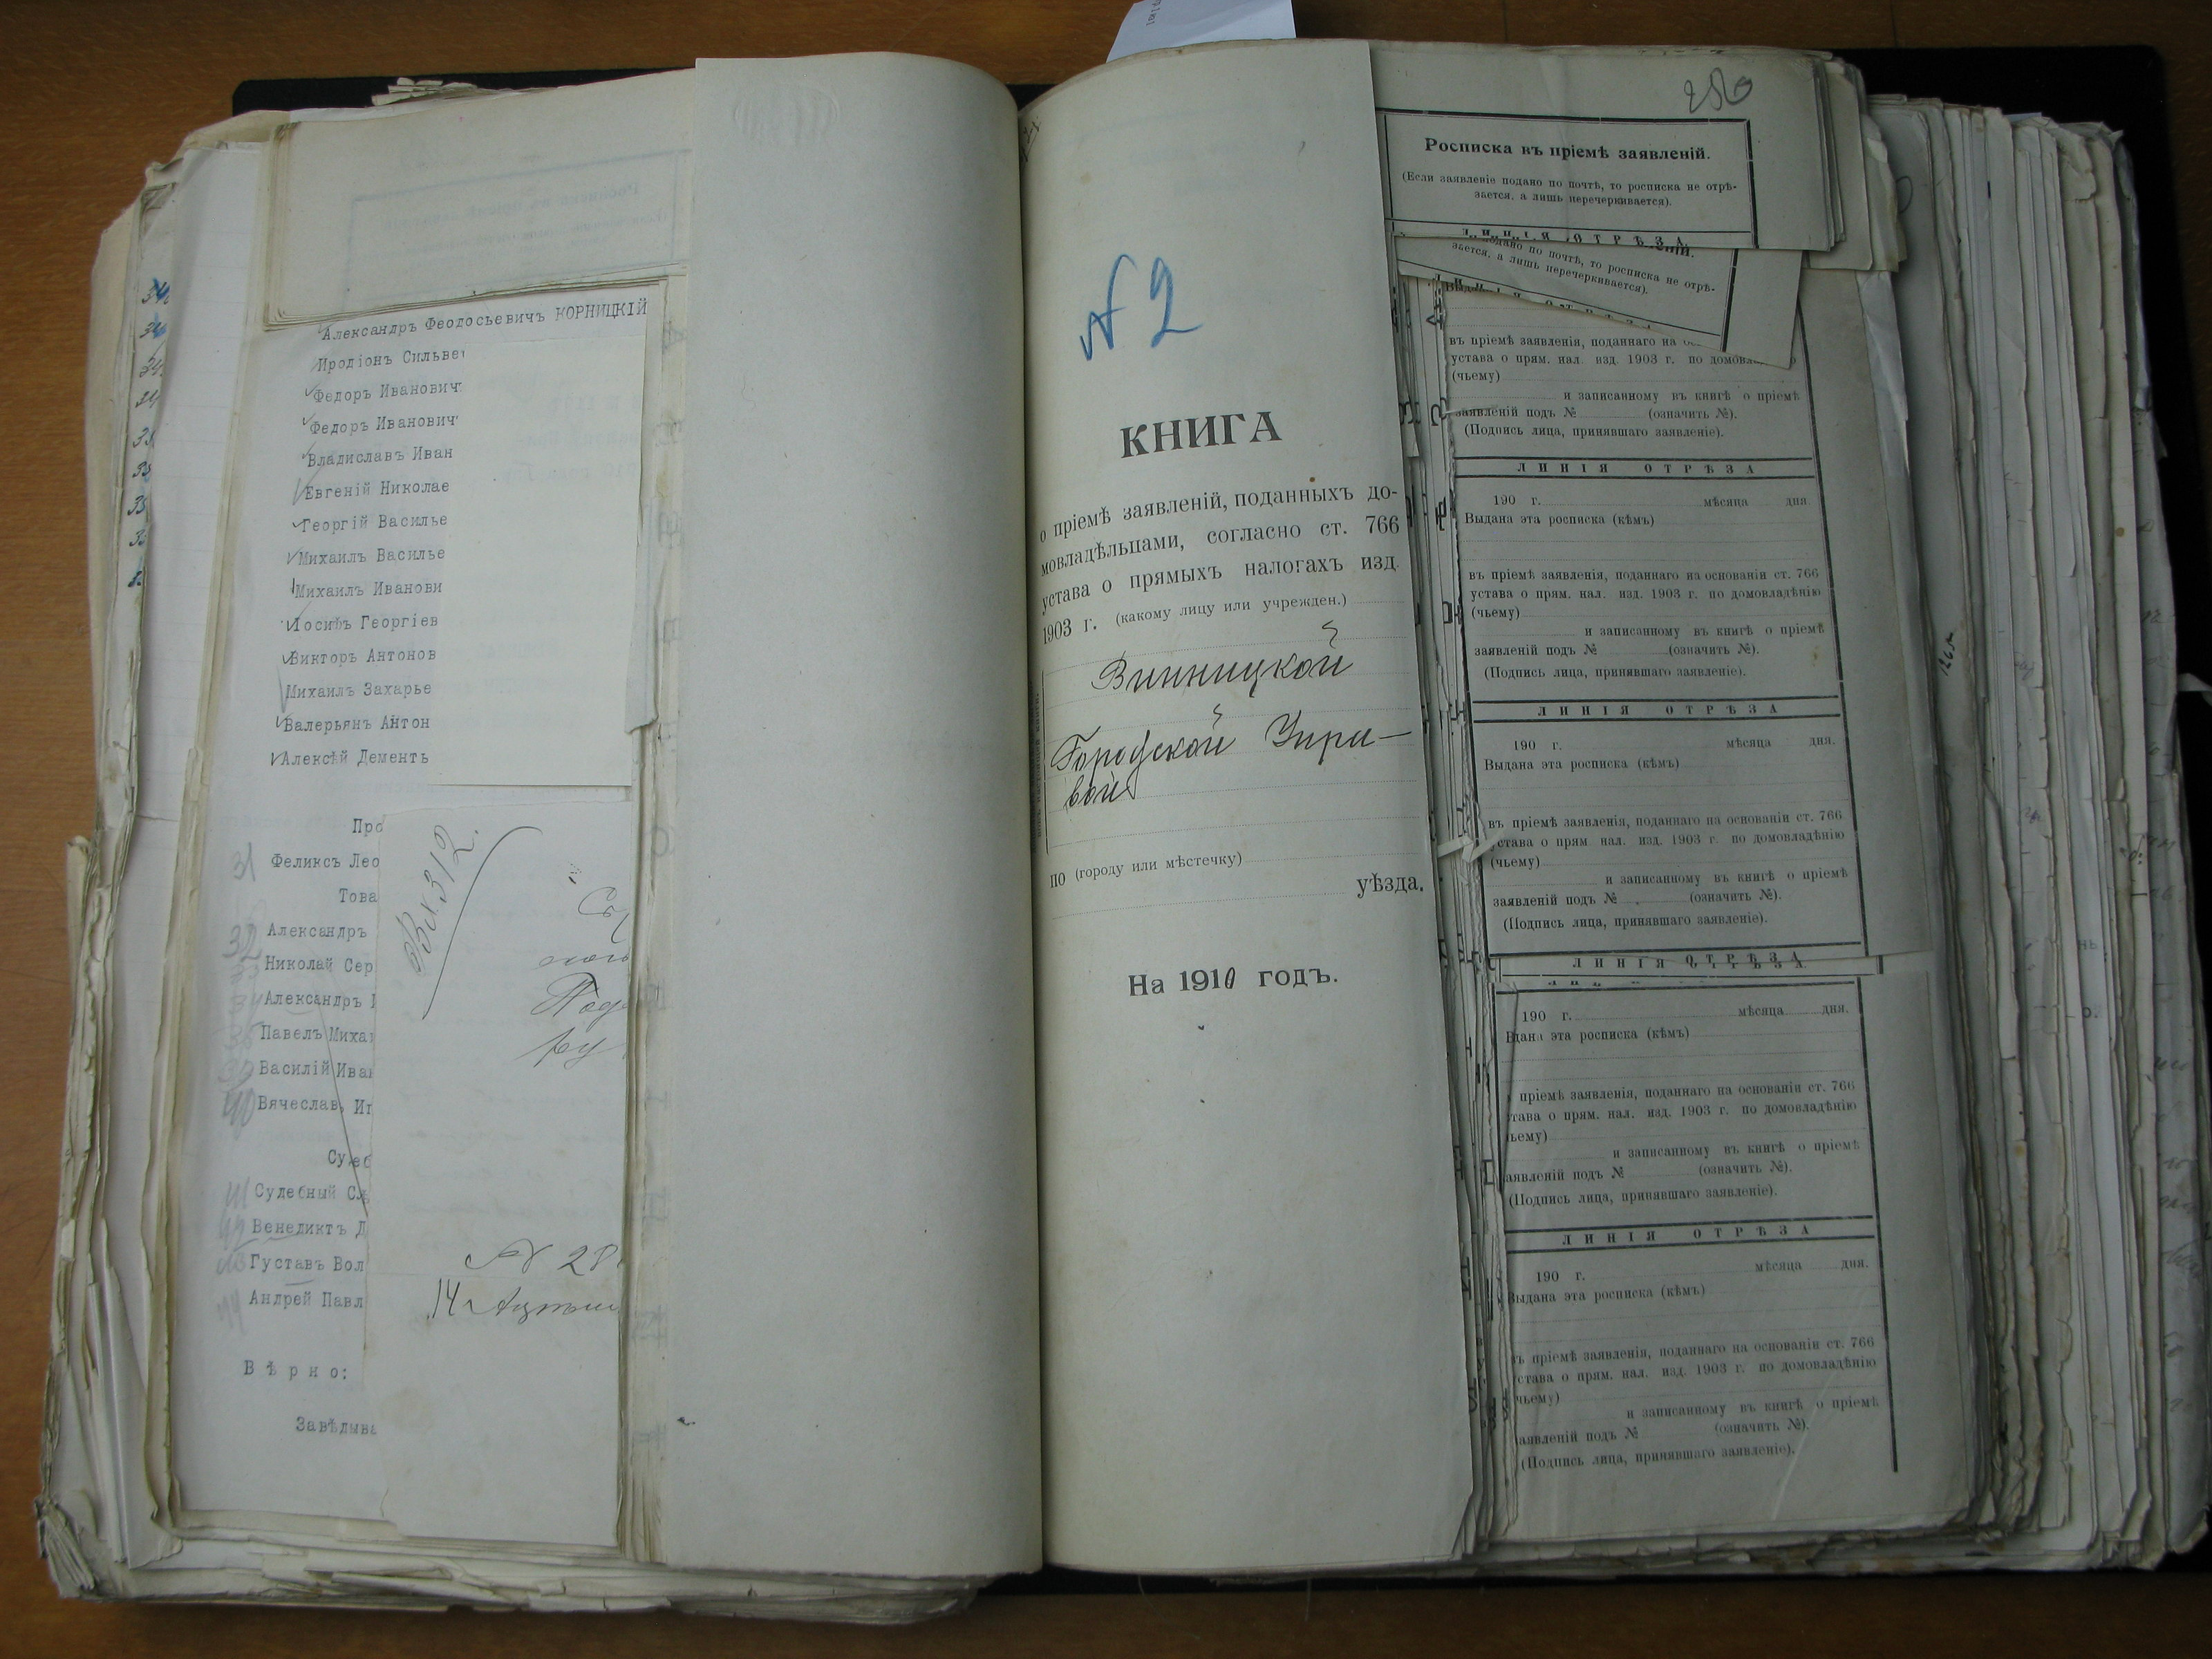 Александръ Феодосьевичъ КОРНИЦКІЙ
Иродіонъ Сильве
Федоръ Иванович
Федоръ Иванович
Владиславъ Иван
Евгеній Николае
Георгій Василье
Михаилъ Василье
Михаилъ Иванови
Іосифъ Георгіев
Викторъ Антонов
Михаилъ Захарье
Валерьянъ Антон
Алексѣй Дементь
Про
31 Феликсъ Лео
Това
32 Александръ
Николай Сер
Александръ
Павелъ Миха
Василій Ива
40 Вячеслав
Судеб
41 Судебный Сл
42 Венедиктъ Д
Густавъ Вол
44 Андрей Павл
Вѣрно:
Завѣдыва
Вх 312.
Под
№ 28
14
№ 2
КНИГА
о пріемѣ заявленій, поданныхъ до-
мовладѣльцами, согласно ст. 766
устава о прямыхъ налогахъ изд.
1903 г. (какому лицу или учрежден.)
Винницкой
Городской Упра-
вой
по (городу или мѣстечку)
уѣзда.
На 1910 годъ.
280
Росписка въ пріемѣ заявленій.
(Если заявленіе подано по почтѣ, то росписка не отрѣ-
зается, а лишь перечеркивается).
ЛИНІЯ ОТРѢЗА
подано по почтѣ, то росписка не отрѣ-
зается, а лишь перечеркивается).
въ пріемѣ заявленія, поданнаго на
устава о прям. нал. изд. 1903 г. по домовл
(чьему)
и записанному въ книгѣ о пріемѣ
заявленій подъ № (означить №).
(Подпись лица, принявшаго заявленіе).
ЛИНІЯ ОТРѢЗА
190 г. мѣсяца дня.
Выдана эта росписка (кѣмъ)
въ пріемѣ заявленія, поданнаго на основаніи ст. 766
устава о прям. нал. изд. 1903 г. по домовладѣнію
(чьему)
и записанному въ книгѣ о пріемѣ
заявленій подъ № (означить №).
(Подпись лица, принявшаго заявленіе).
ЛИНІЯ ОТРѢЗА
190 г. мѣсяца дня.
Выдана эта росписка (кѣмъ)
въ пріемѣ заявленія, поданнаго на основаніи ст. 766
устава о прям. нал. изд. 1903 г. по домовладѣнію
(чьему)
и записанному въ книгѣ о пріемѣ
заявленій подъ № (означить №).
(Подпись лица, принявшаго заявленіе).
ЛИНІЯ ОТРѢЗА
190 г. мѣсяца дня.
Выдана эта росписка (кѣмъ)
пріемѣ заявленія, поданнаго на основаніи ст. 766
става о прям. нал. изд. 1903 г. по домовладѣнію
ьему)
и записанному въ книгѣ о пріемѣ
аявленій подъ № (означить №).
(Подпись лица, принявшаго заявленіе).
ЛИНІЯ ОТРѢЗА
190 г. мѣсяца дня.
Выдана эта росписка (кѣмъ)
въ пріемѣ заявленія, поданнаго на основаніи ст. 766
устава о прям. нал. изд. 1903 г. по домовладѣнію
чьему)
и записанному въ книгѣ о пріемѣ
аявленій подъ № (означить №).
(Подпись лица, принявшаго заявленіе).